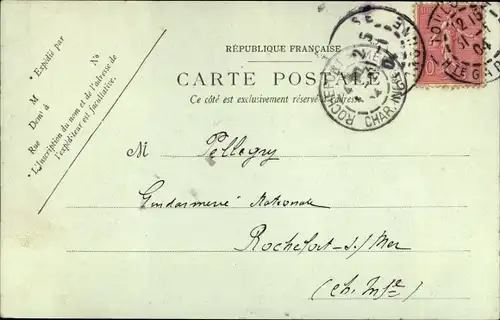 RÉPUBLIQUE FRANÇAISE
CARTE POSTALE
Ce côté est exclusivement réservé à l'adresse.
* Expédié par
M
N°
Demt à
Rue
* L'inscription du nom et de l'adresse de
l'expéditeur est facultative.
M Pellegry
Gendarmerie Nationale
Rochefort-s/Mer
(Ch. Infre)
ROCHEFORT
CHAR.